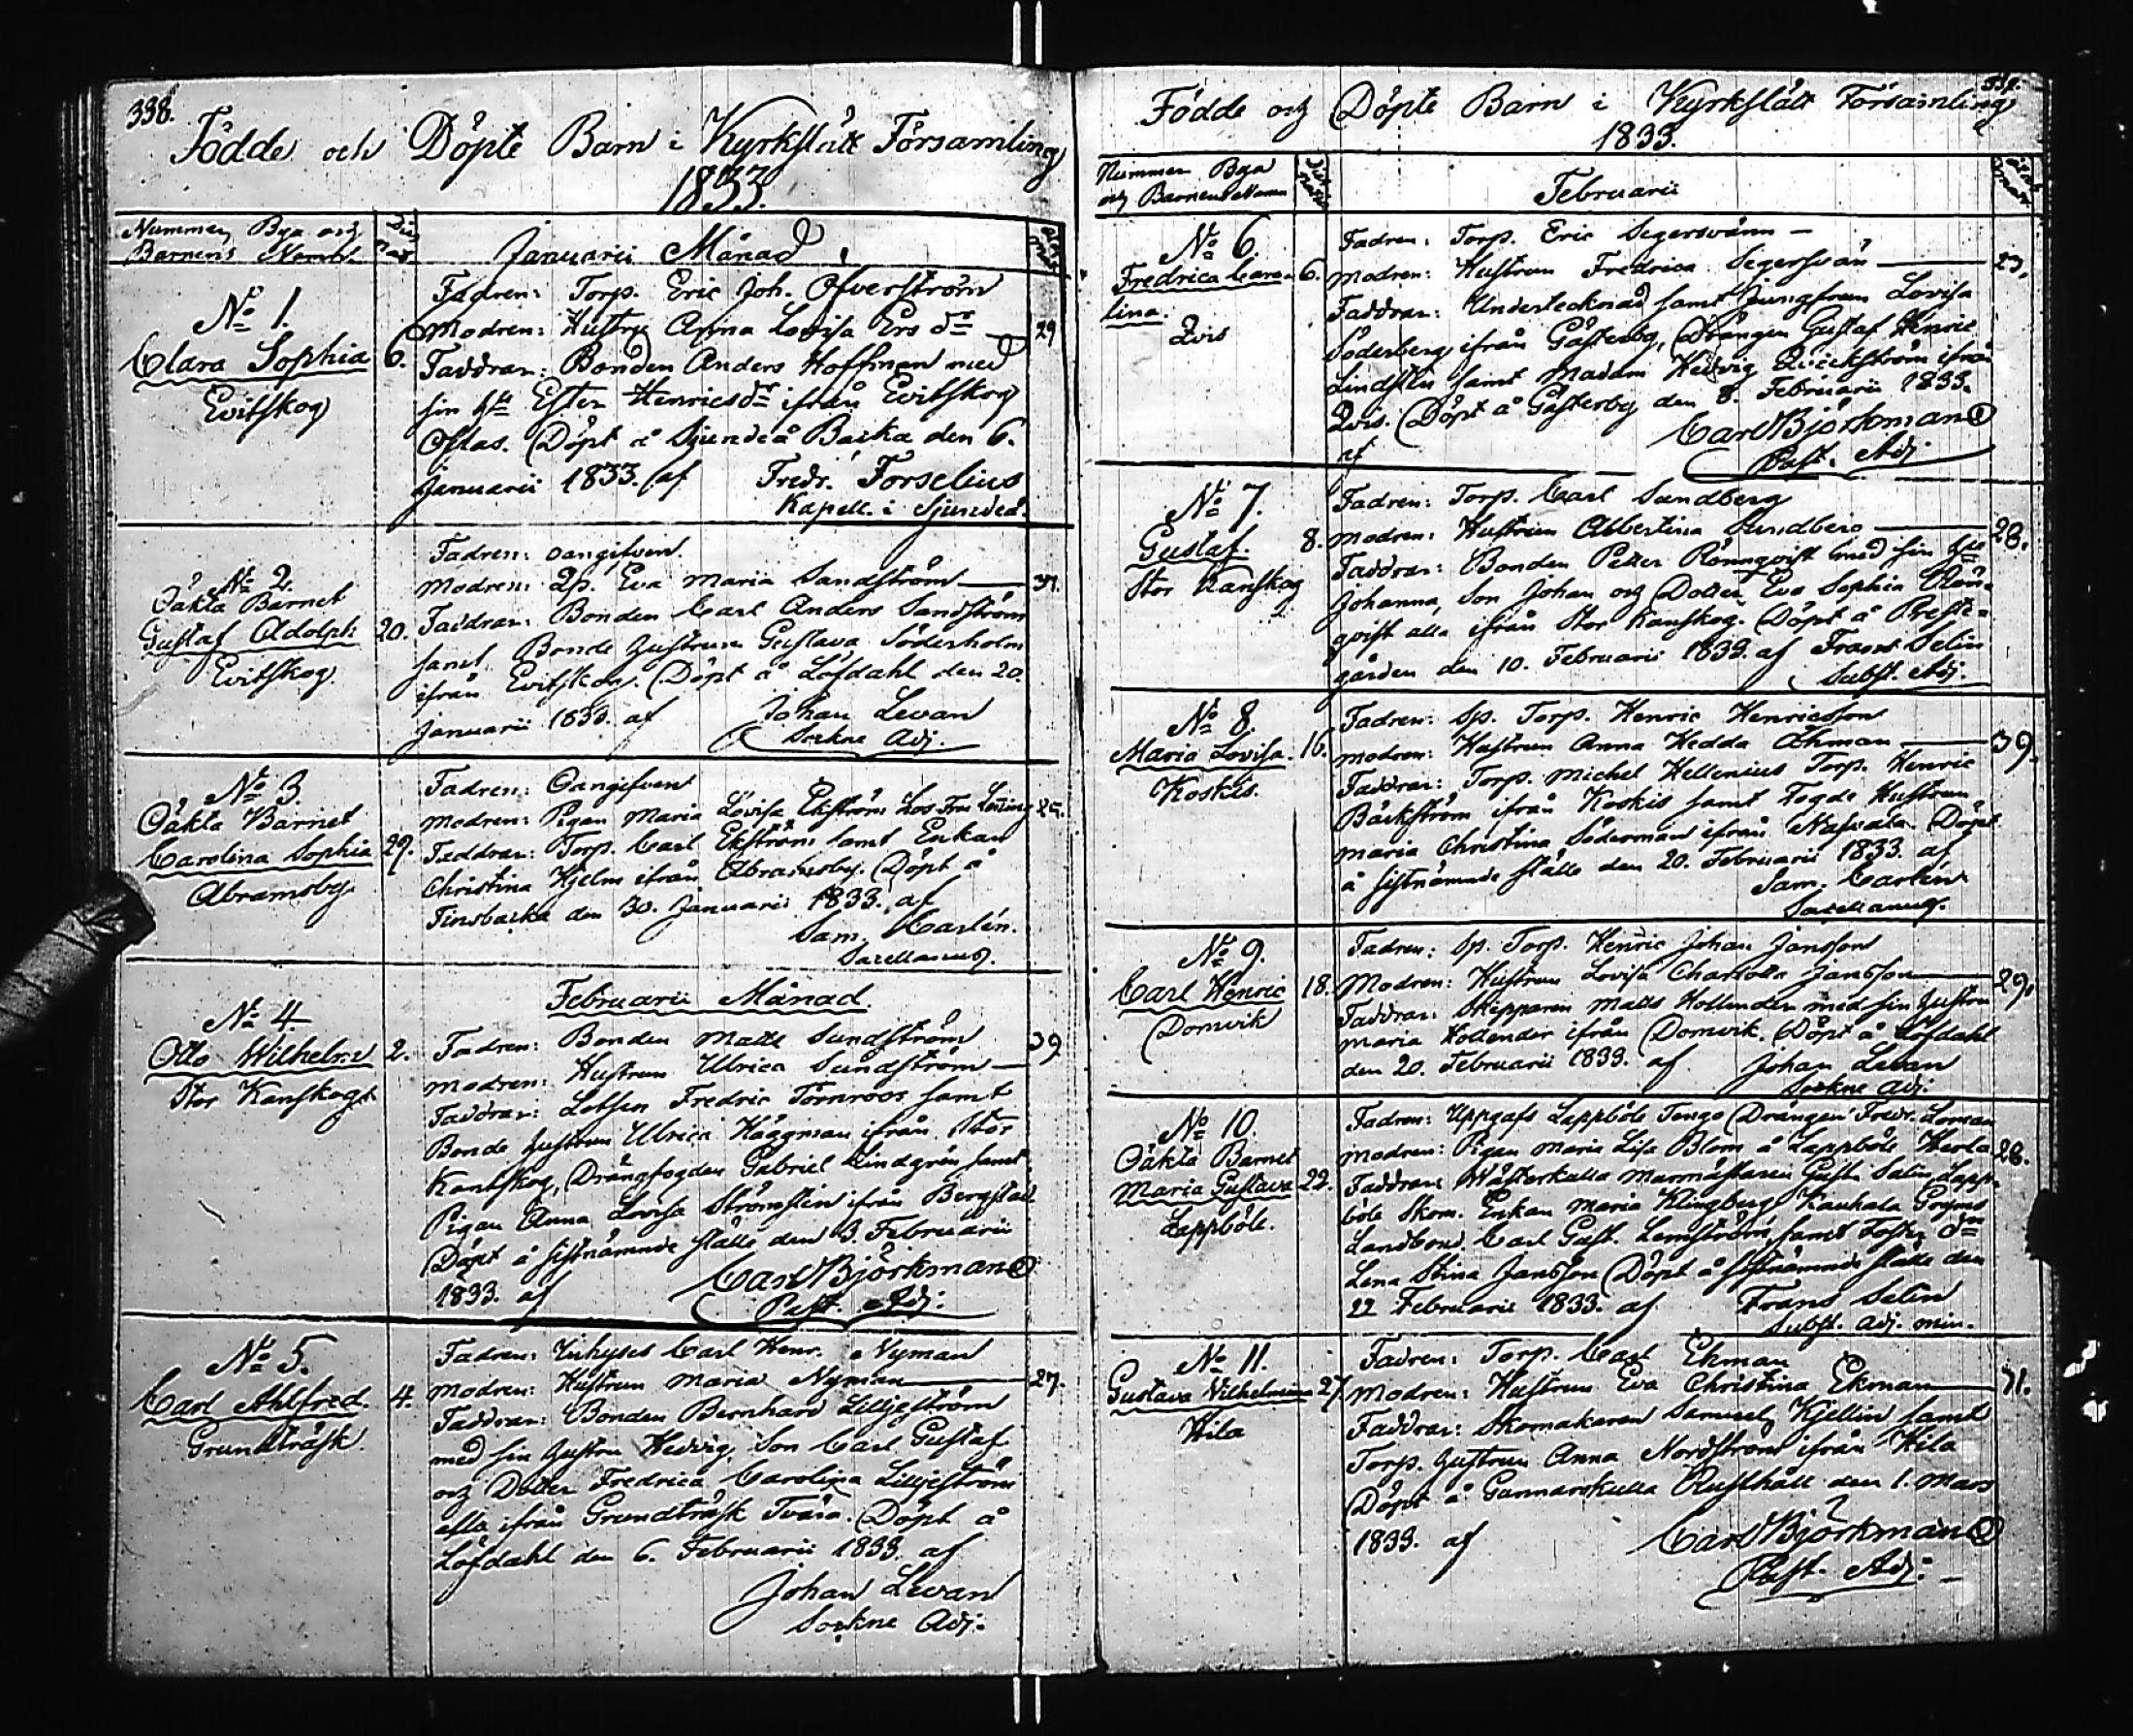 338.
Födde och Döpte Barn i Kyrkslätt Församling
1833.
Nummer, Bya och
Barnens Namn.
Januarii Månad.
No 1.
Clara Sophia
Evitskog
6.
Fadren: Torp. Eric Joh. Ofverström
Modren: Hustru Anna Lovisa Ers dr — 29
Faddrar: Bonden Anders Hoffman med
sin hu Ester Henricsdr ifrån Evitskog
Ofias. Döpt å Sjundeå Backa den 6.
Januarii 1833. af Fredr. Forselius
Kapell. i Sjundeå.
No 2.
Oäkta Barnet
Gustaf Adolph
Evitskog.
20.
Fadren: oangifven.
Modren: Qp. Eva Maria Sandström —
Faddrar: Bonden Carl Anders Sandström
samt Bonde hustrun Gustava Söderholm
ifrån Evitskog. Döpt å Löfdahl den 20.
Januarii 1833. af Johan Levan
Sockne Adj.
No 3.
Oäkta Barnet
Carolina Sophia
Abramsby.
29.
Fadren: Oangifven
Modren: Pigan Maria Lovisa Ekström
Faddrar: Torp. Carl Ekström samt Enkan
Christina Hjelm ifrån Abramsby. Döpt å
Finsbacka den 30. Januarii 1833. af
Sam. Carlén.
Sacellanus.
Februarii Månad.
No 4
Otto Wilhelm
Stor Kanskog
2.
Fadren: Bonden Matts Sundström
Modren: Hustrun Ulrica Sundström — 39
Faddrar: Lotsen Fredric Törnroos samt
Bonde hustrun Ulrica Häggman ifrån Stor
Kanskog, Drängfogden Gabriel Lindgrén samt
Pigan Anna Lovisa Strömstén ifrån Bergstad
Döpt å sistnämnde ställe den 3. Februarii
1833. af Carl Björkman
Past. Adj.
No 5.
Carl Ahlfred.
Grundträsk.
4.
Fadren: Inhyses Carl Henr. Nyman
Modren: Hustrun Maria Nyman — 27.
Faddrar: Bonden Bernhard Lilljeström
med sin hustru Hedvig, Son Carl Gustaf
och Dotter Fredrica Carolina Lilljeström
alla ifrån Grundträsk Tvära. Döpt å
Löfdahl den 6. Februarii 1833 af
Johan Levan
Sockne Adj.
Födde och Döpte Barn i Kyrkslätt Församling
1833.
Nummer Bya
och Barnens Namn
Februarii
No 6.
Fredrica Caro-
lina.
Qvis
6.
Fadren: Torp. Eric Segersvänn —
Modren: Hustrun Fredrica Segersvän — 23.
Faddrar: Undertecknad samt Jungfrun Lovisa
Söderberg ifrån Gästerby, Drängen Gustaf Henric
Lindstén samt Madam Hedvig ifrån
Qvis. Döpt å Gästerby den 8. Februarii 1833.
af Carl Björkman
Past. Adj
No 7.
Gustaf.
Stor Kanskog
8.
Fadren: Torp. Carl Sundberg
Modren: Hustrun Albertina Sundberg — 28.
Faddrar: Bonden Petter Rönnqvist med sin hu
Johanna, Son Johan och Dotter Eva Sophia Rön-
qvist alla ifrån Stor Kanskog. Döpt å Preste-
gården den 10. Februarii 1833. af Frans Selin
Subst. Adj.
No 8.
Maria Lovisa.
Koskis.
16.
Fadren: Sp. Torp. Henric Henricsson
Modren: Hustrun Anna Hedda Öhman — 39.
Faddrar: Torp. Michel Hellenius Torp. Henric
Bäckström ifrån Koskis samt Fogde Hustrun
Maria Christina Söderman ifrån Navala. Döpt
å sistnämnde ställe den 20. Februarii 1833. af
Sam. Carlén
Sacellanus.
No 9.
Carl Henric
Domvik
18.
Fadren: Sp. Torp. Henric Johan Jansson
Modren: Hustrun Lovisa Charlotta Jansson — 29.
Faddrar: Skepparen Matts Hollender med sin hustru
Maria Hollender ifrån Domvik. Döpt å Löfdahl
den 20. Februarii 1833. af Johan Levan
Sockne Adj.
No 10.
Oäkta Barnet
Maria Gustava
Lappböle.
22.
Fadren: Uppgafs Lappböle Tengo Drängen Fredr. Loman
Modren: Pigan Maria Lisa Blom å Lappböle Herla 28.
Faddrar: Wästerkulla Murmästaren Gust. Salin Lapp-
böle Skom. Enkan Maria Klingberg Kauhala Gryms
Landbond. Carl Gust. Lemström, samt Foster dr
Lena Stina Jansson Döpt å sistnämnde ställe den
22 Februarii 1833. af Frans Selin
Subst. Adj. min.
No 11.
Gustava Wilhelmina
Hila
27
Fadren: Torp. Carl Ekman
Modren: Hustrun Eva Christina Ekman —
Faddrar: Skomakaren Samuel Kjellin samt
Torp. hustrun Anna Nordström ifrån Hila
Döpt å Gunnarskulla Rusthåll den 1. Mars
1833. af Carl Björkman
Past. Adj.